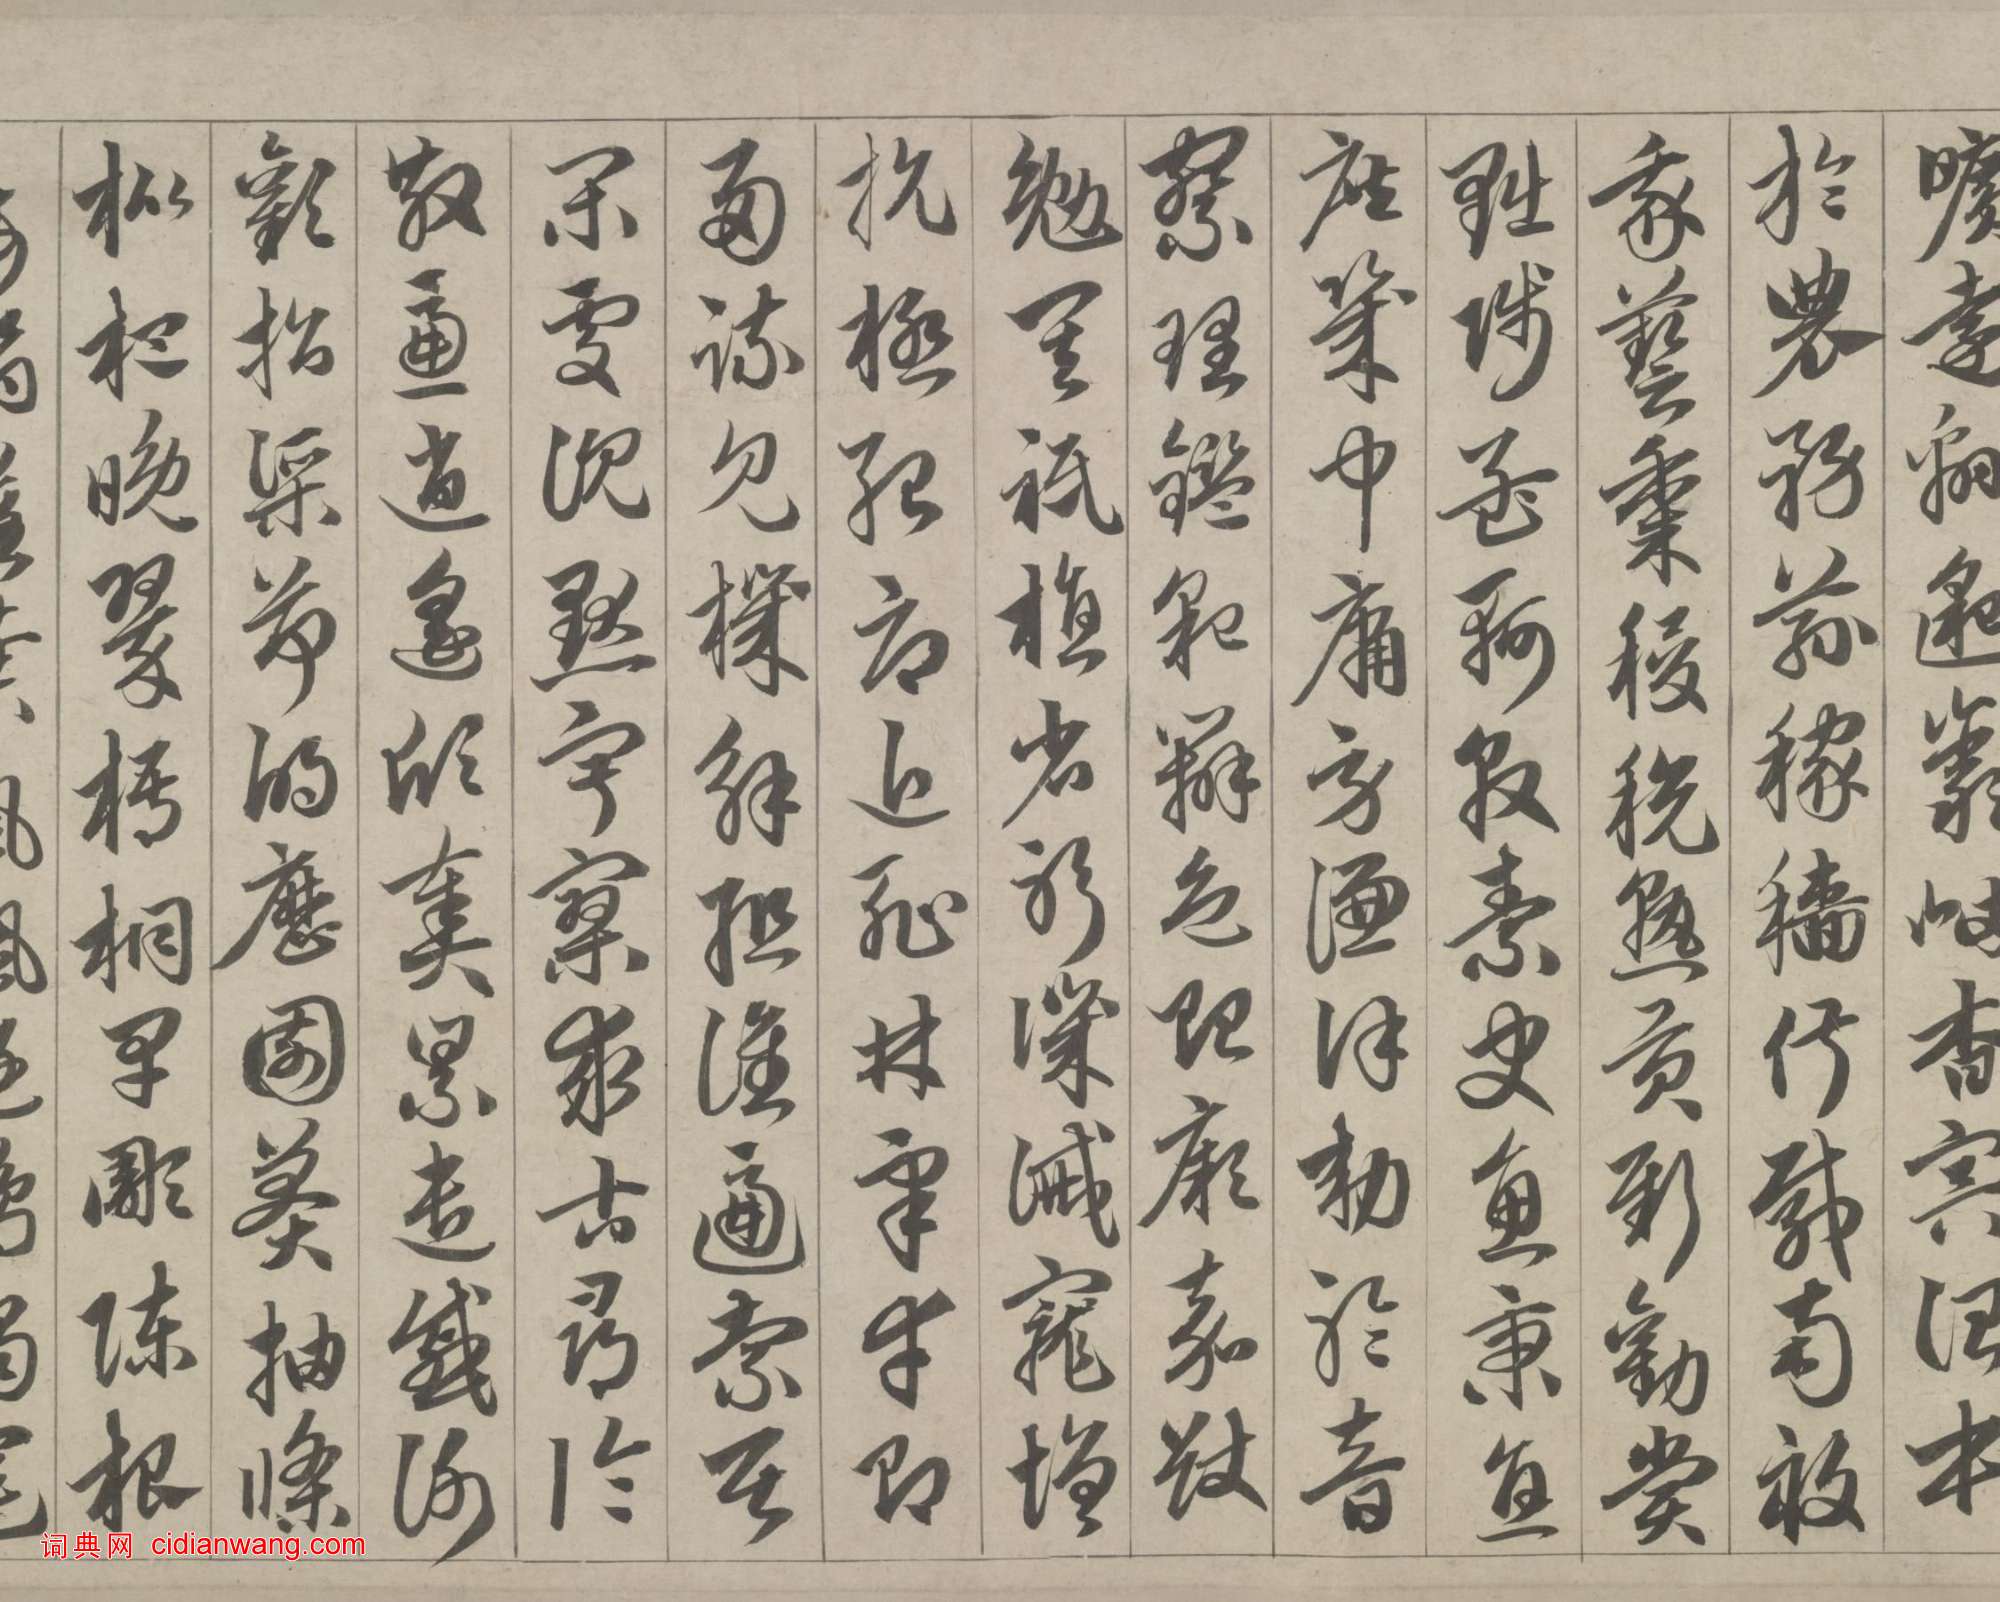 曠遠綿邈巖岫杳冥治本
於農務茲稼穡俶載南畝
我藝黍稷稅熟貢新勸賞
黜陟孟軻敦素史魚秉直
庶幾中庸勞謙謹勅聆音
察理鑑貌辨色貽厥嘉猷
勉其祗植省躬譏誡寵增
抗極殆辱近恥林皋幸即
兩疏見機解組誰逼索居
閑處沉默寂寥求古尋論
散慮逍遙欣奏累遣慼謝
歡招渠荷的歷園莽抽條
枇杷晚翠梧桐早彫陳根
委翳落葉飄颻遊鵾獨運
词典网 cidianwang.com